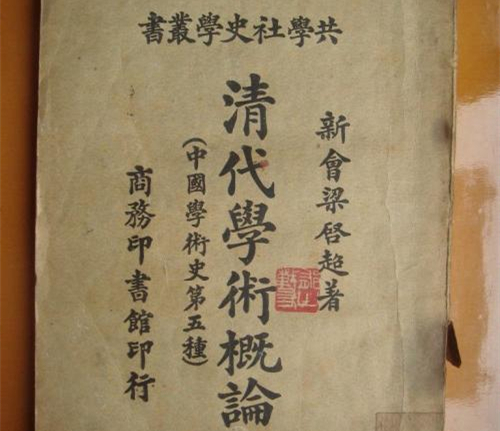 共學社史學叢書
新會梁啓超著
清代學術概論
(中國學術史第五種)
商務印書館印行